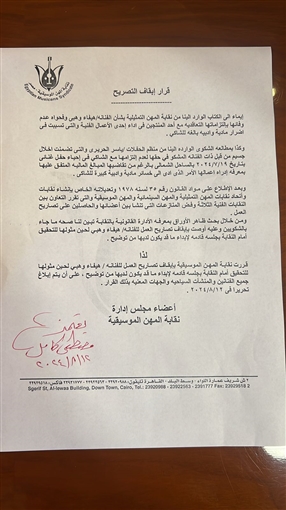 نقابة المهن الموسيقية
Egyptian Musicians Syndicate
قرار إيقاف التصريح
إيماء الى الكتاب الوارد الينا من نقابة المهن التمثيلية بشأن الفنانه/هيفاء وهبي وفحواه عدم
وفائها بإلتزاماتها التعاقديه مع أحد المنتجين فى اداء إحدى الأعمال الفنية والتى تسببت فى
اضرار مادية وادبيه بالغه للشاكي .
وكذا بمطالعه الشكوى الوارده الينا من منظم الحفلات /ياسر الحريرى والتى تضمنت اخلال
جسيم من قبل ذات الفنانه المشكو في حقها لعدم إلتزامها مع الشاكي في إحياء حفل غنائى
بتاريخ ٢٠٢٤/٧/١٩ بالساحل الشمالى بالرغم من تقاضيها المبالغ الماليه المتفق عليها
بمعرفه إبرام اعمالها الأمر الذى ادى الى خسائر مادية وادبية كبيرة للشاكي .
وبعد الإطلاع على مواد القانون رقم ٣٥ لسنه ١٩٧٨ وتعديلاته الخاص بإنشاء نقابات
واتحاد نقابات المهن التمثيلية والمهن السينمائية والمهن الموسيقية والتى تقرر التعاون بين
النقابات الفنية الثلاثة وفض المنازعات التى تنشأ بين أعضائها والحاصلين على تصاريح
العمل .
ومن خلال بحث ظاهر الأوراق بمعرفة الادارة القانونية بالنقابة تبين لنا صحه ما جاء
بالشكويين وعليه أوصت بإيقاف تصاريح العمل للفنانه/ هيفاء وهبي لحين مثولها للتحقيق
أمام النقابة بجلسه قادمه لإبداء ما قد يكون لديها من توضيح .
لذا
قررت نقابة المهن الموسيقية بإيقاف تصاريح العمل للفنانه / هيفاء وهبي لحين مثولها
للتحقيق أمام النقابة بجلسه قادمه لإبداء ما قد يكون لديها من توضيح ، على أن يتم إبلاغ
جميع الفنانين والمنشآت السياحية والجهات المعنيه بذلك القرار .
تحريرا فى ٢٠٢٤/٨/١٢
أعضاء مجلس إدارة
نقابة المهن الموسيقية
يعتمد
مصطفى كامل
٢٠٢٤/٨/١٢
Sgerif St, Al-lewaa Building, Down Town, Cairo, Tel: 23920988 - 23922583 - 2391777 Fax: 23929618